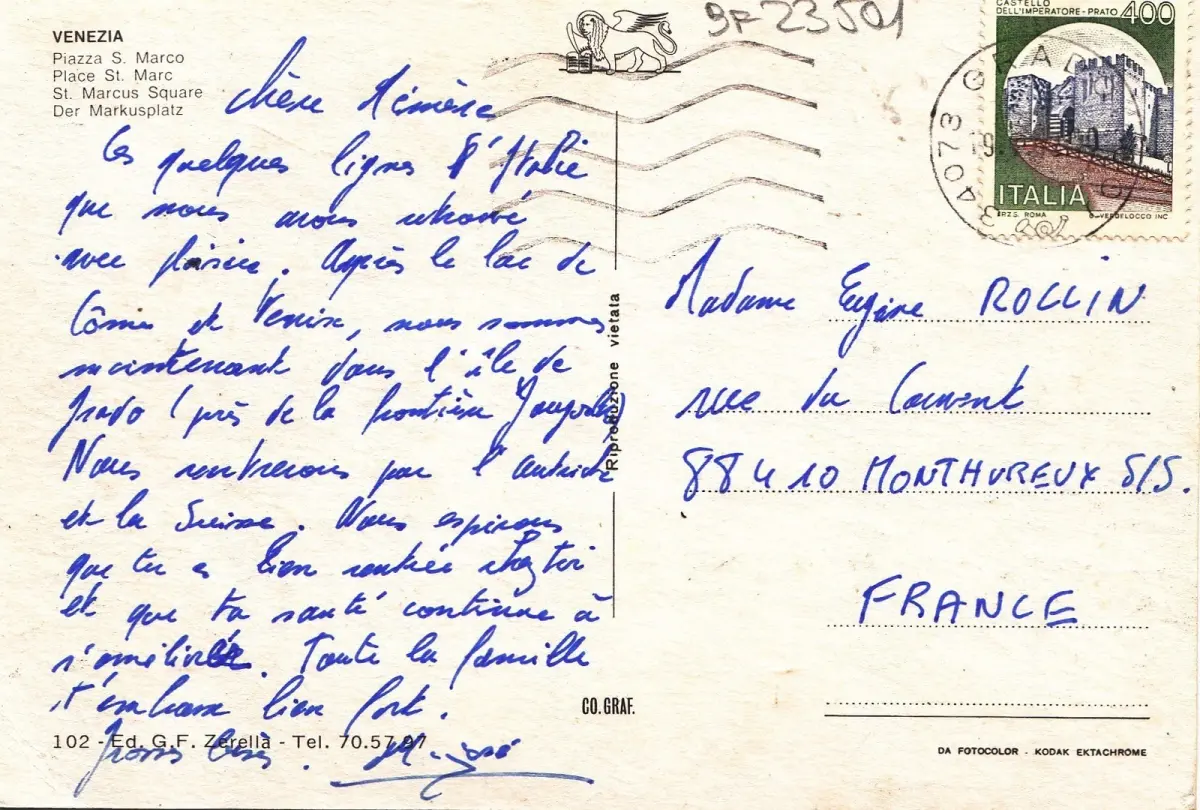 VENEZIA
Piazza S. Marco
Place St. Marc
St. Marcus Square
Der Markusplatz
Chère Mémère
Ces quelques lignes d'Italie
que nous avons retrouvé
avec plaisir. Après le lac de
Côme et Venise, nous sommes
maintenant dans l'île de
Grado (près de la frontière Yougoslave)
Nous rentrerons par l'Autriche
et la Suisse. Nous espérons
que tu es bien rentrée chez toi
et que ta santé continue à
s'améliorer. Toute la famille
t'embrasse bien fort.
Grosses bises.
102 - Ed. G.F. Zerella - Tel. 70.57.97
9F 23501
CASTELLO
DELL'IMPERATORE-PRATO 400
34073 GRADO
ITALIA
I.P.Z.S. ROMA
Riproduzione vietata
Madame Eugène ROLLIN
rue du Couvent
88410 MONTHUREUX S/S.
FRANCE
CO.GRAF.
DA FOTOCOLOR - KODAK EKTACHROME